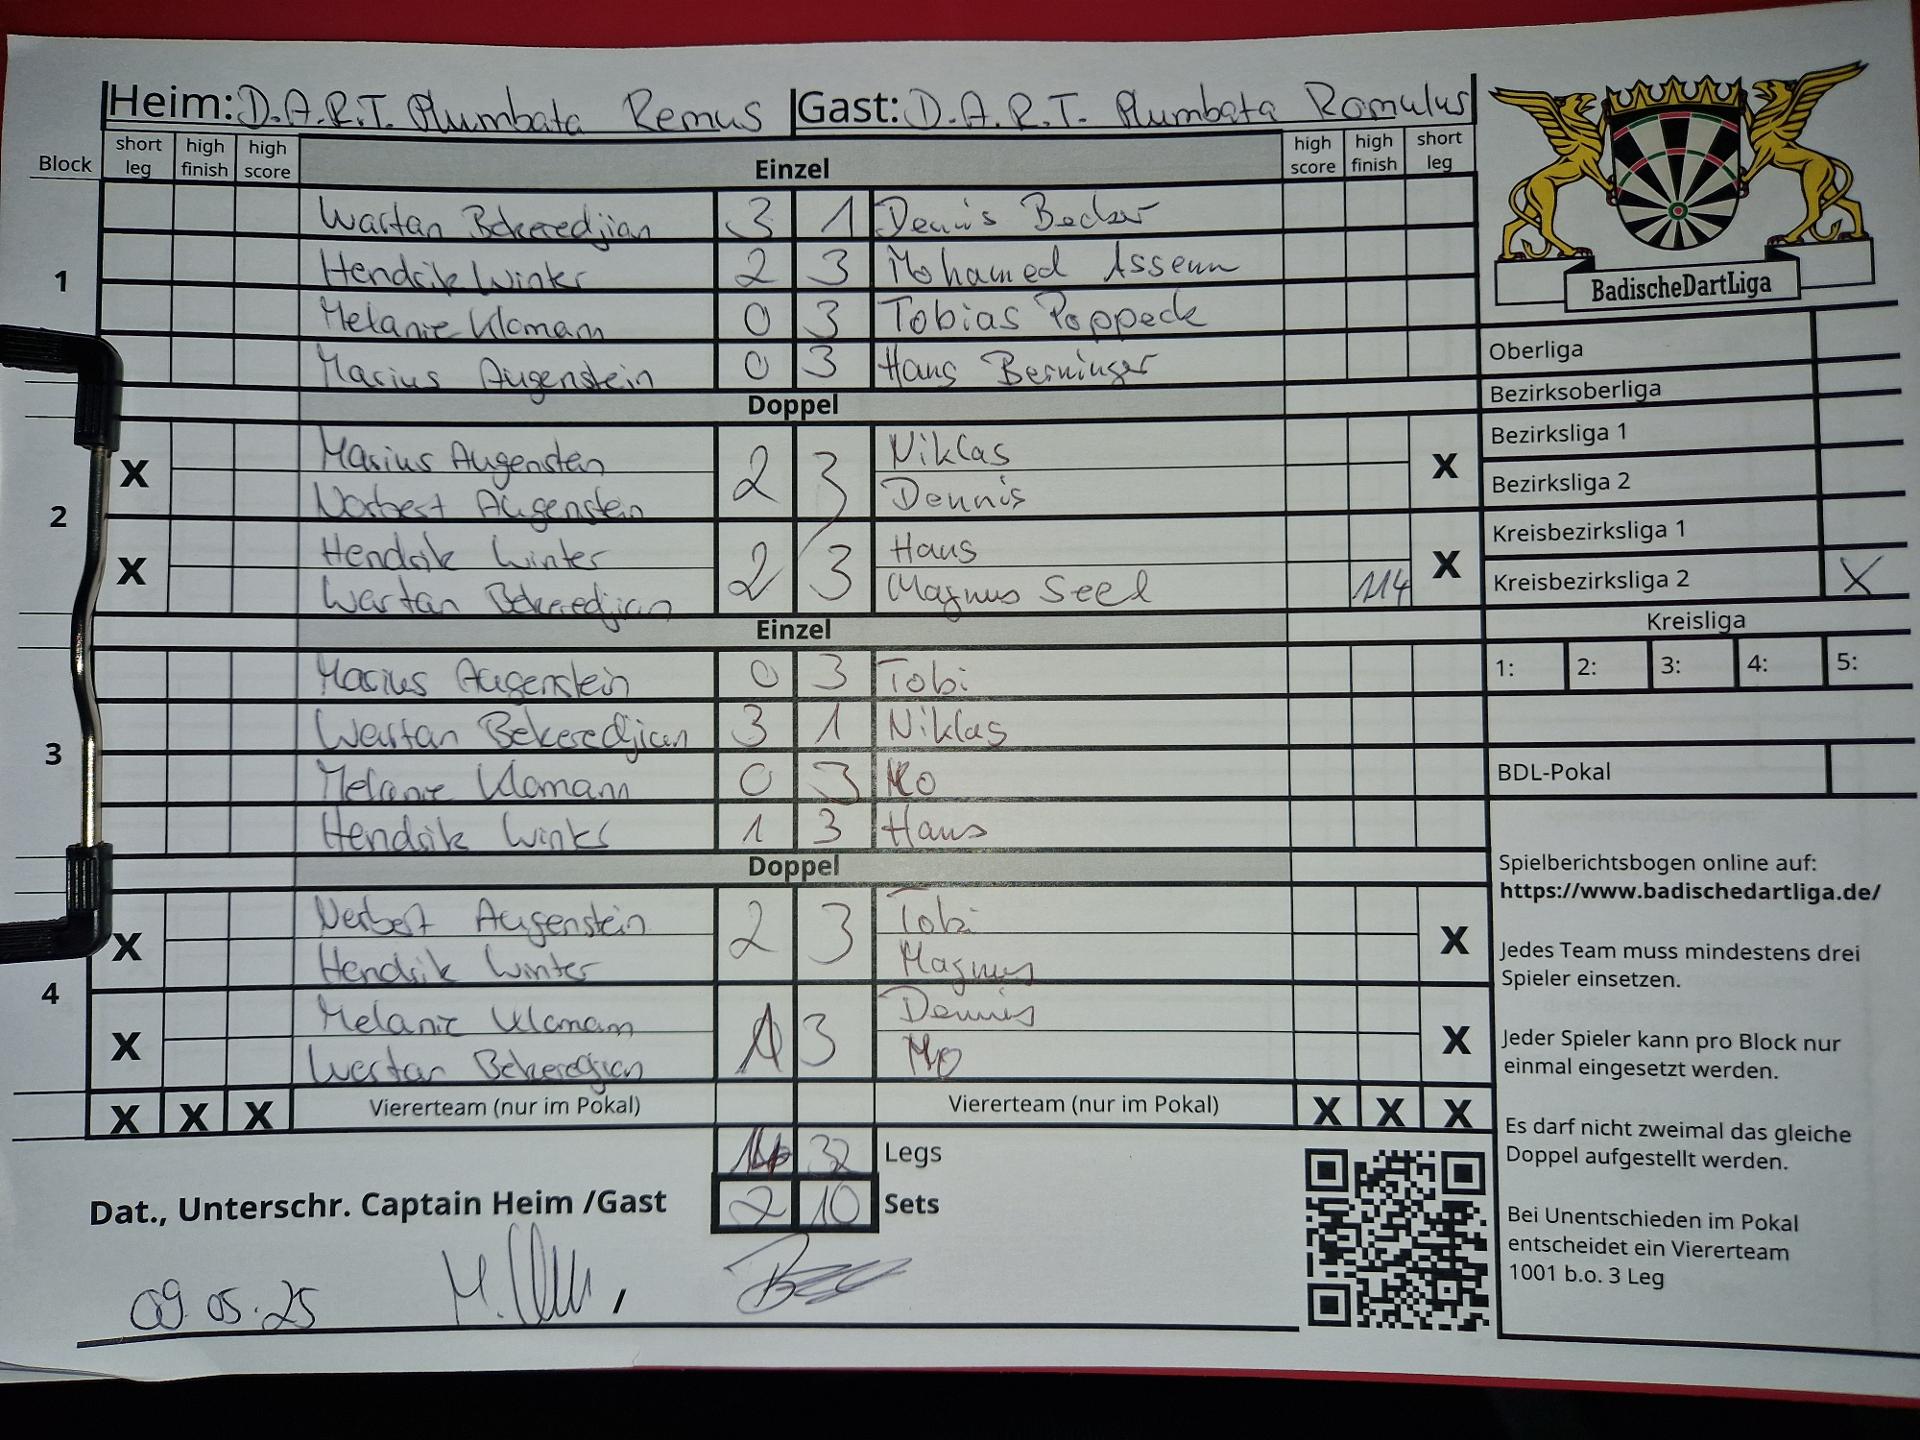 Heim: D.A.R.T. Plumbata Remus Gast: D.A.R.T. Plumbata Romulus
Block short leg high finish high score Einzel high score high finish short leg
1
Wartan Bekeredjian 3 1 Dennis Becker
Hendrik Winter 2 3 Mohamed Assem
Melanie Klomann 0 3 Tobias Poppeck
Marius Augenstein 0 3 Hans Berninger
Doppel
2
X Marius Augenstein 2 3 Niklas X
Norbert Augenstein Dennis
X Hendrik Winter 2 3 Haus X
Wartan Bekeredjian Magnus Seel 114
Einzel
3
Marius Augenstein 0 3 Tobi
Wartan Bekeredjian 3 1 Niklas
Melanie Klomann 0 3 Mo
Hendrik Winter 1 3 Hans
Doppel
4
X Norbert Augenstein 2 3 Tobi X
Hendrik Winter Magnus
X Melanie Klomann 1 3 Dennis X
Wartan Bekeredjian Mo
X X X Viererteam (nur im Pokal) Viererteam (nur im Pokal) X X X
32 Legs
2 10 Sets
Dat., Unterschr. Captain Heim /Gast
09.05.25
BadischeDartLiga
Oberliga
Bezirksoberliga
Bezirksliga 1
Bezirksliga 2
Kreisbezirksliga 1
Kreisbezirksliga 2 X
Kreisliga
1: 2: 3: 4: 5:
BDL-Pokal
Spielberichtsbogen online auf:
https://www.badischedartliga.de/
Jedes Team muss mindestens drei
Spieler einsetzen.
Jeder Spieler kann pro Block nur
einmal eingesetzt werden.
Es darf nicht zweimal das gleiche
Doppel aufgestellt werden.
Bei Unentschieden im Pokal
entscheidet ein Viererteam
1001 b.o. 3 Leg